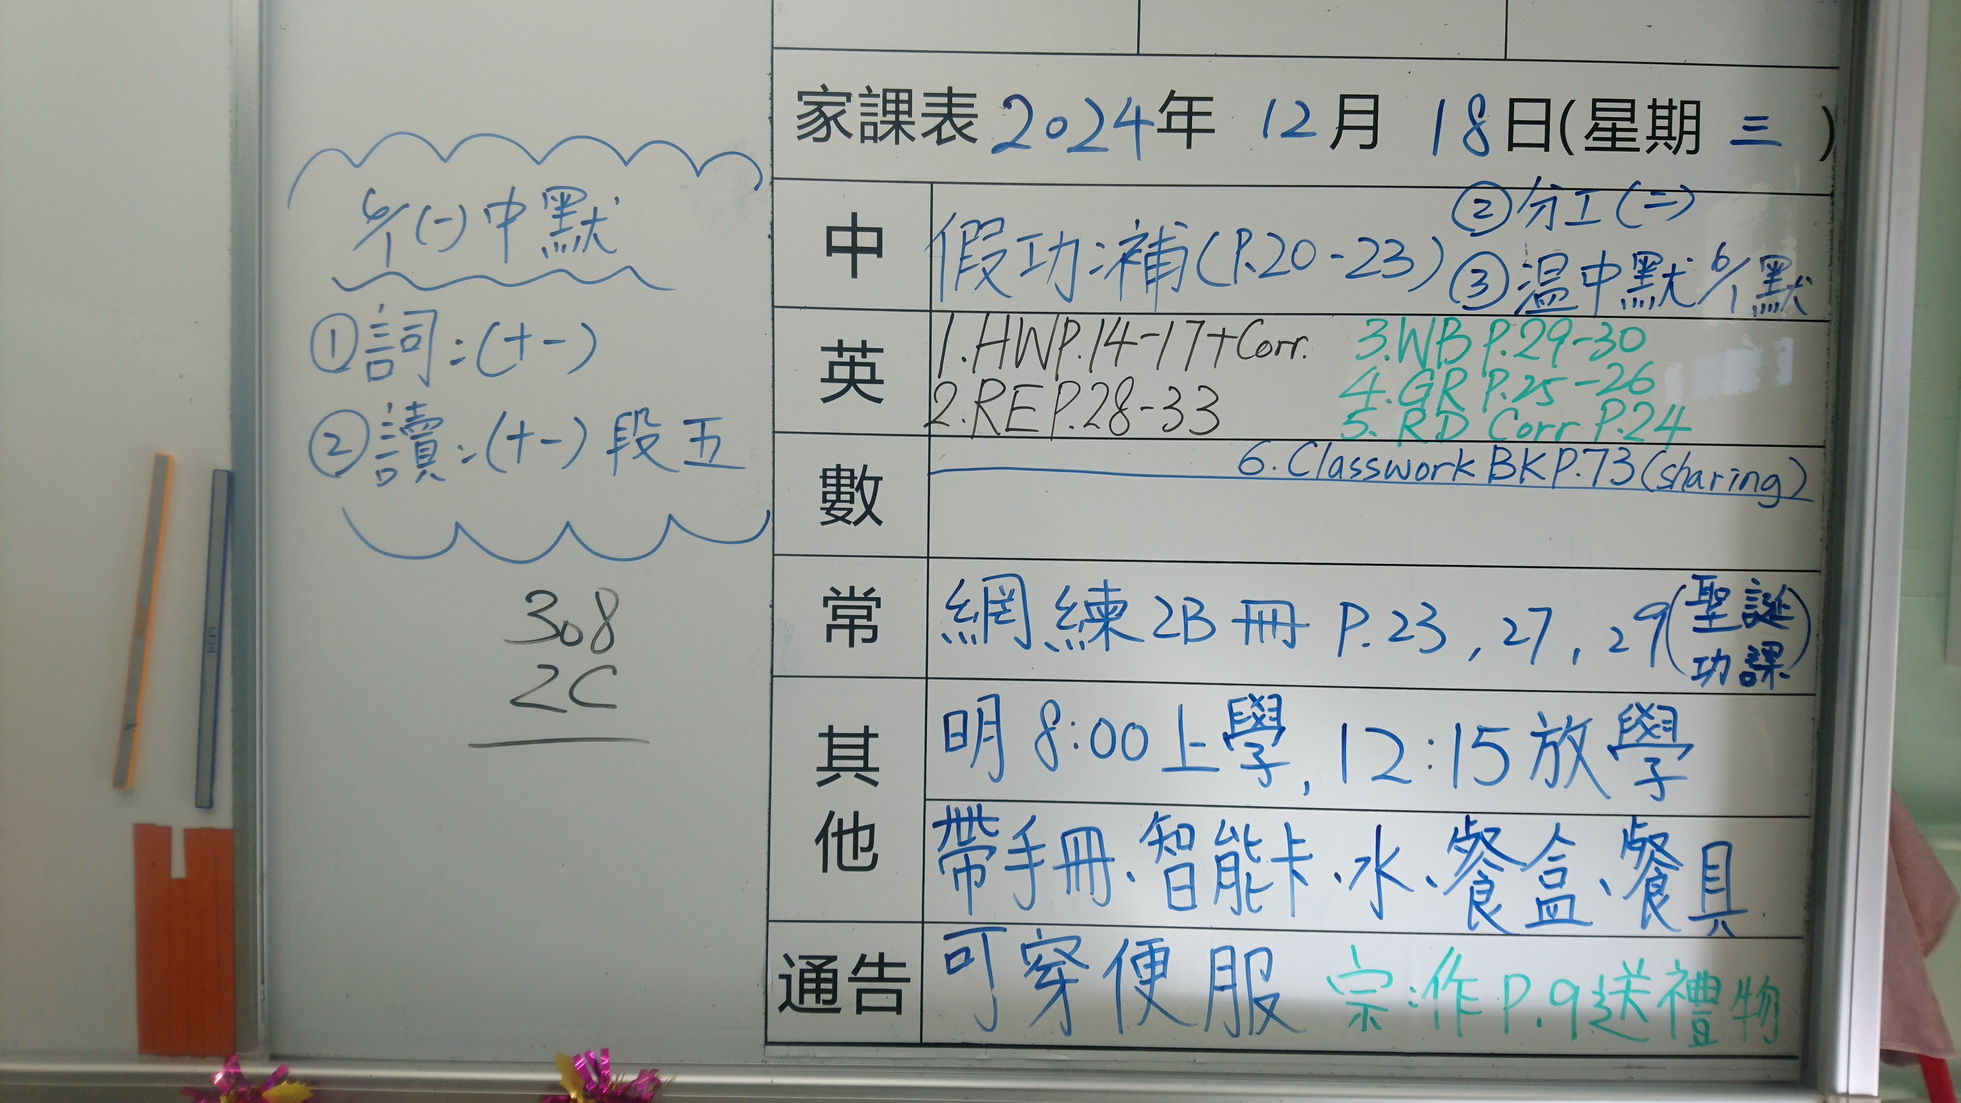 6/1(一)中默
①詞:(十一)
②讀:(十一)段五
308
2C
家課表2024年 12月 18日(星期三)
中 假功:補(P.20-23) ②分工(二)
③溫中默 6/1默
英 1.HWP.14-17+Corr. 3.WB P.29-30
2.REP.28-33 4.GR P.25-26
5. RD Corr P.24
數 6.Classwork BK P.73(sharing)
常 網練2B冊 P.23,27,29(聖誕功課)
其他 明8:00上學,12:15放學
帶手冊、智能卡、水、餐盒、餐具
通告 可穿便服 宗:作P.9送禮物